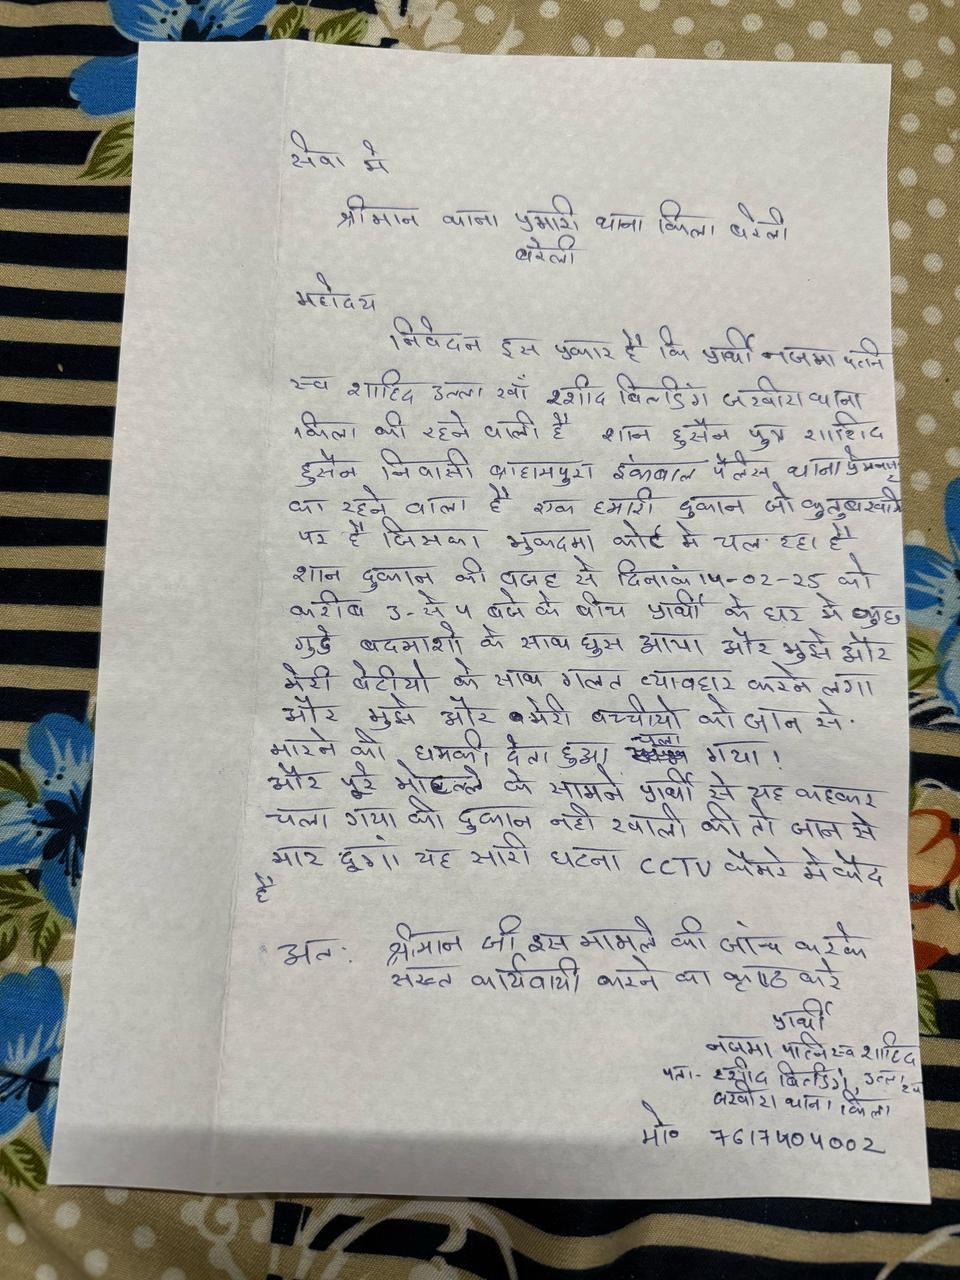 सेवा मे
श्रीमान थाना प्रभारी थाना किला बरेली
बरेली
महोदय
निवेदन इस प्रकार है कि प्रार्थी नजमा पत्नि
स्व शाहिद उल्ला खाँ रशीद बिल्डिंग जखीरा थाना
किला की रहने वाली है शान हुसैन पुत्र शाहिद
हुसैन निवासी इंकबाल पैलेस थाना प्रेमनगर
का रहने वाला है एक हमारी दुकान जो कुतुबखाने
पर है जिसका मुकदमा कोर्ट मे चल रहा है
शान दुकान की वजह से दिनांक 14-02-25 को
करीब 3-से 4 बजे के बीच प्रार्थी के घर मे कुछ
गुडे बदमाशो के साथ घुस आया और मुझे और
मेरी बेटीयो के साथ गलत व्यावहार करने लगा
और मुझे और मेरी बच्चीयो को जान से
मारने की धमकी देता हुआ चला गया !
और पूरे मोहल्ले के सामने प्रार्थी से यह कहकर
चला गया की दुकान नही खाली की तो जान से
मार दूगां यह सारी घटना CCTV कैमरे मे कैद
है
अतः श्रीमान जी इस मामले की जांच करके
सख्त कार्यवायी करने का करे
प्रार्थी
नजमा पत्नि स्व शाहिद
उल्ला खां
पता- रशीद बिल्डिंग,
जखीरा थाना किला
मो० 7617404002